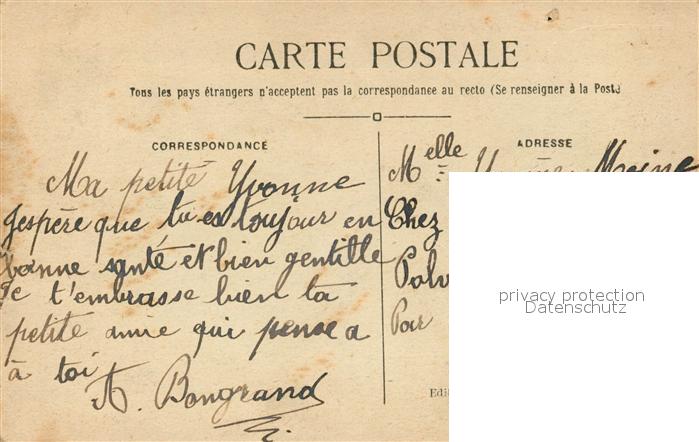 CARTE POSTALE
Tous les pays étrangers n'acceptent pas la correspondance au recto (Se renseigner à la Poste
CORRESPONDANCE
Ma petite Yvonne
J'espère que tu es toujour en
bonne santé et bien gentille
Je t'embrasse bien ta
petite amie qui pense a
à toi
A. Bongrand
ADRESSE
Melle Yvonne Moine
Chez
Par
Edit
privacy protection
Datenschutz